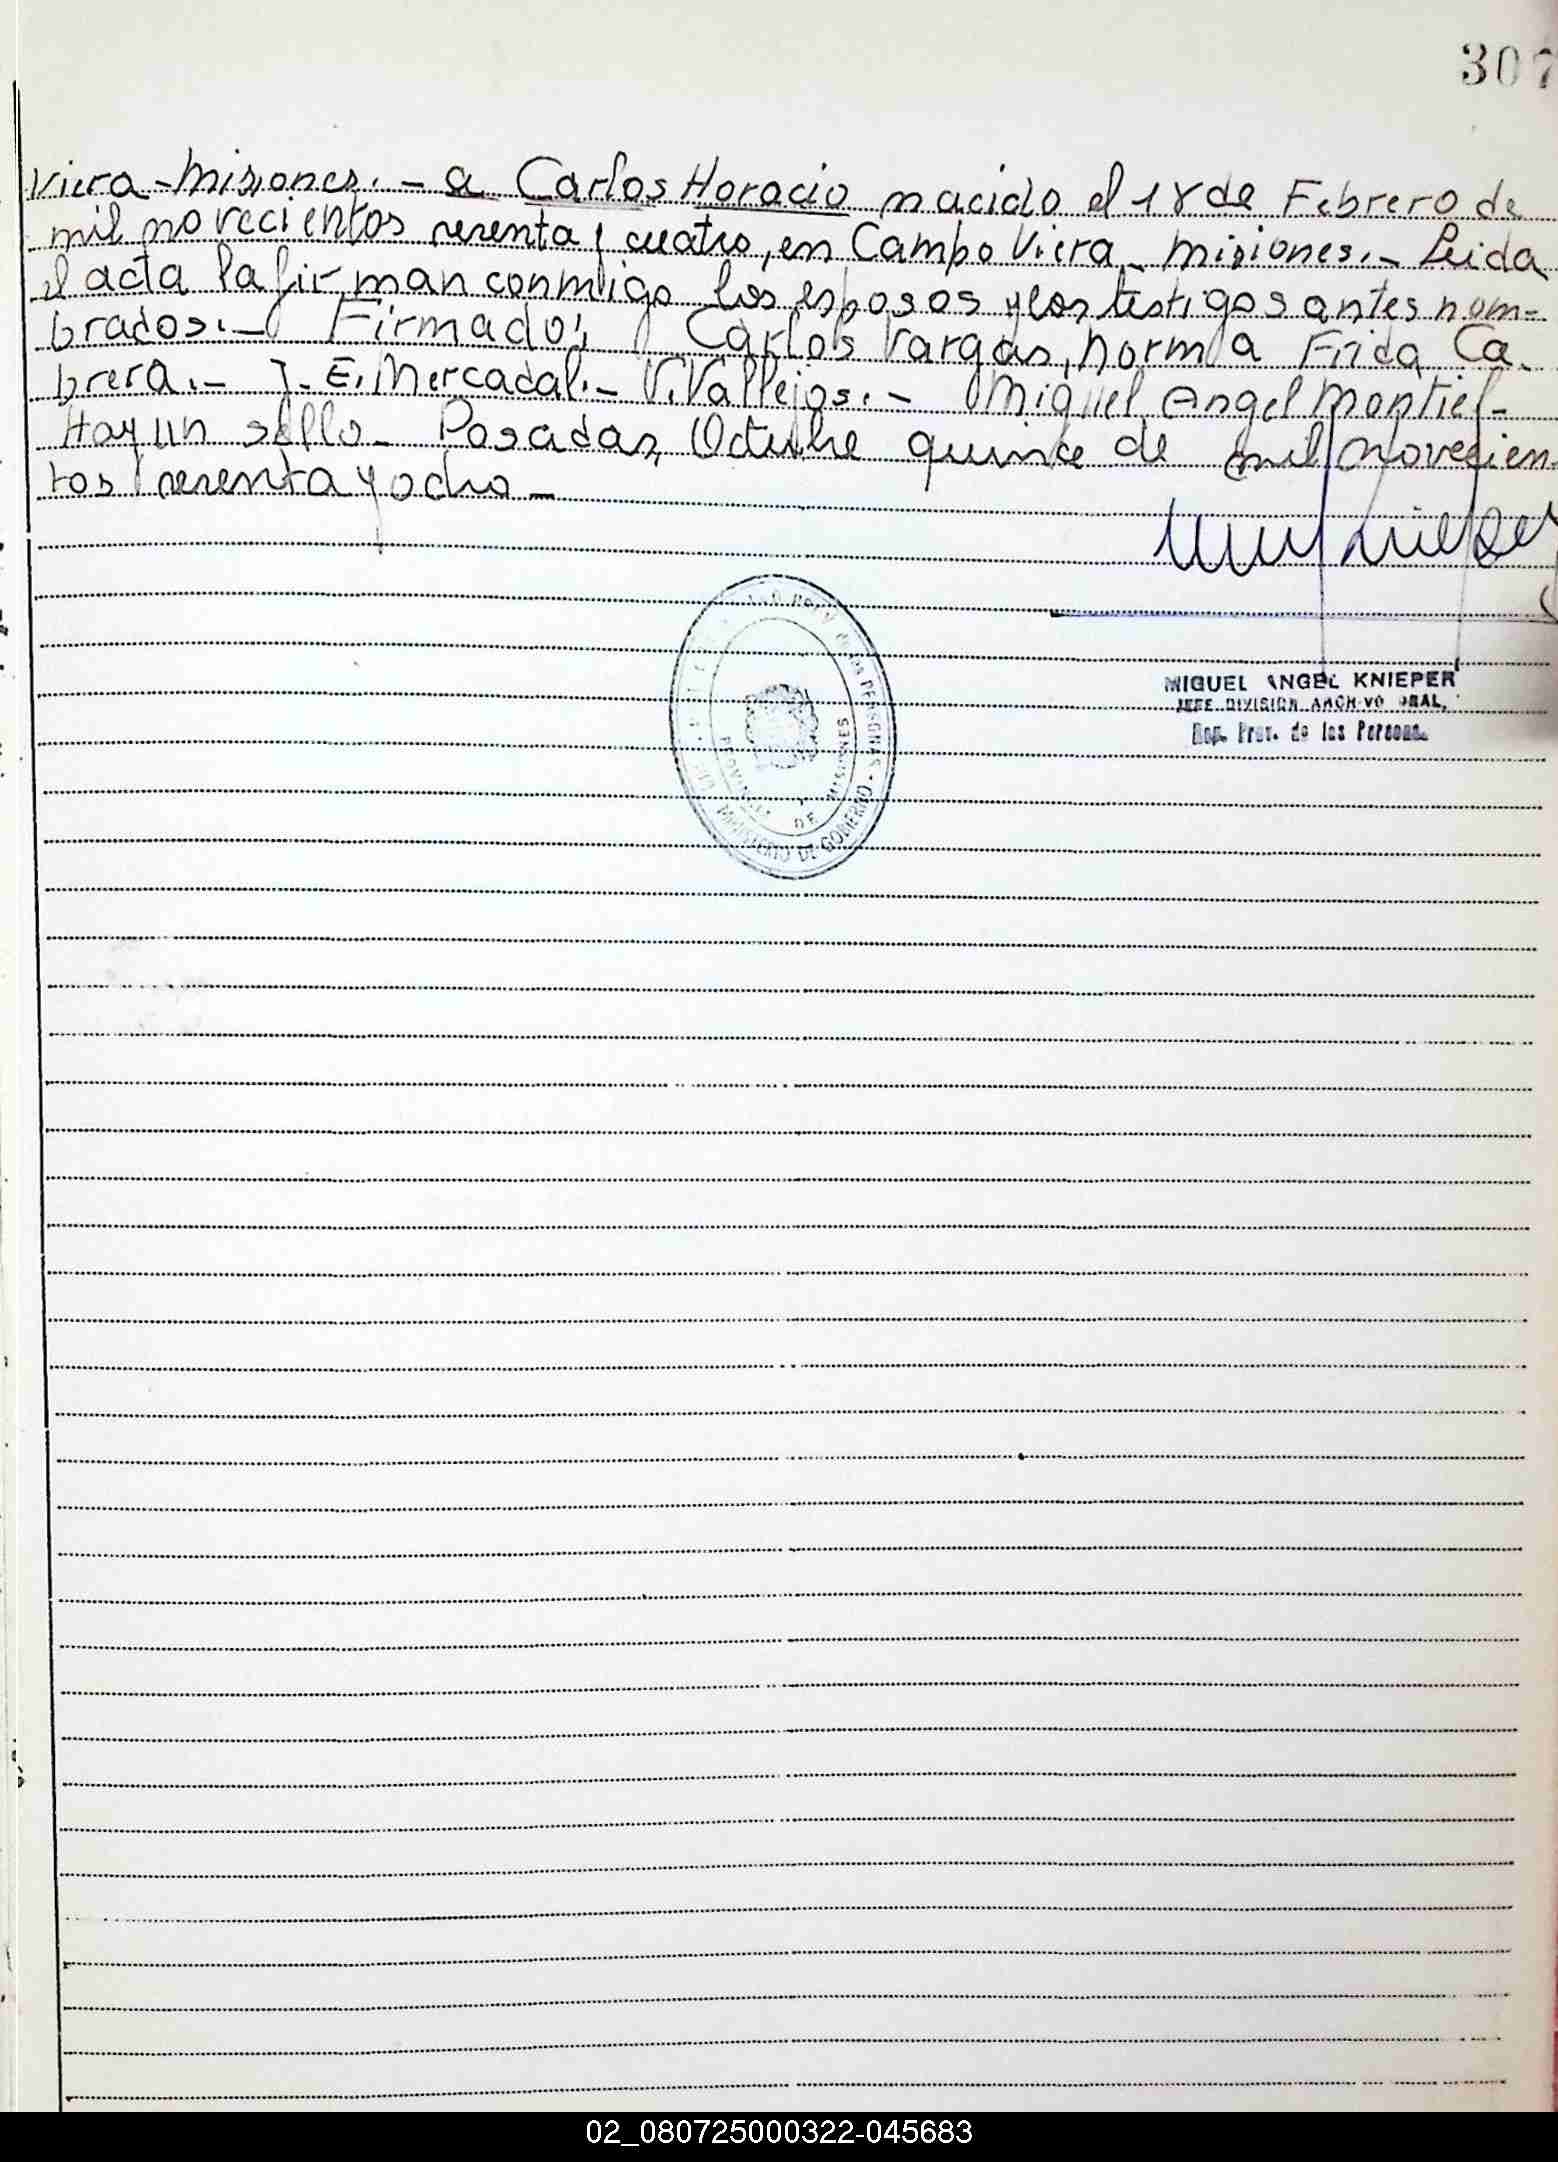 307
Viera - Misiones. - a Carlos Horacio nacido el 18 de Febrero de
mil novecientos sesenta y cuatro, en Campo Viera - Misiones. - Leida
el acta la firman conmigo los esposos y los testigos antes nom-
brados. - Firmado: Carlos Vargas, Norma Frida Ca-
brera. - J. E. Mercadal. - V. Vallejos. - Miguel Angel Montiel -
Hay un sello - Posadas, Octubre quince de mil novecien-
tos sesenta y ocho -
MINISTERIO DE GOBIERNO
de las PERSONAS
PROVINCIA DE MISIONES
MIGUEL ANGEL KNIEPER
JEFE DIVISION ARCHIVO GRAL.
Reg. Prov. de las Personas
02_080725000322-045683